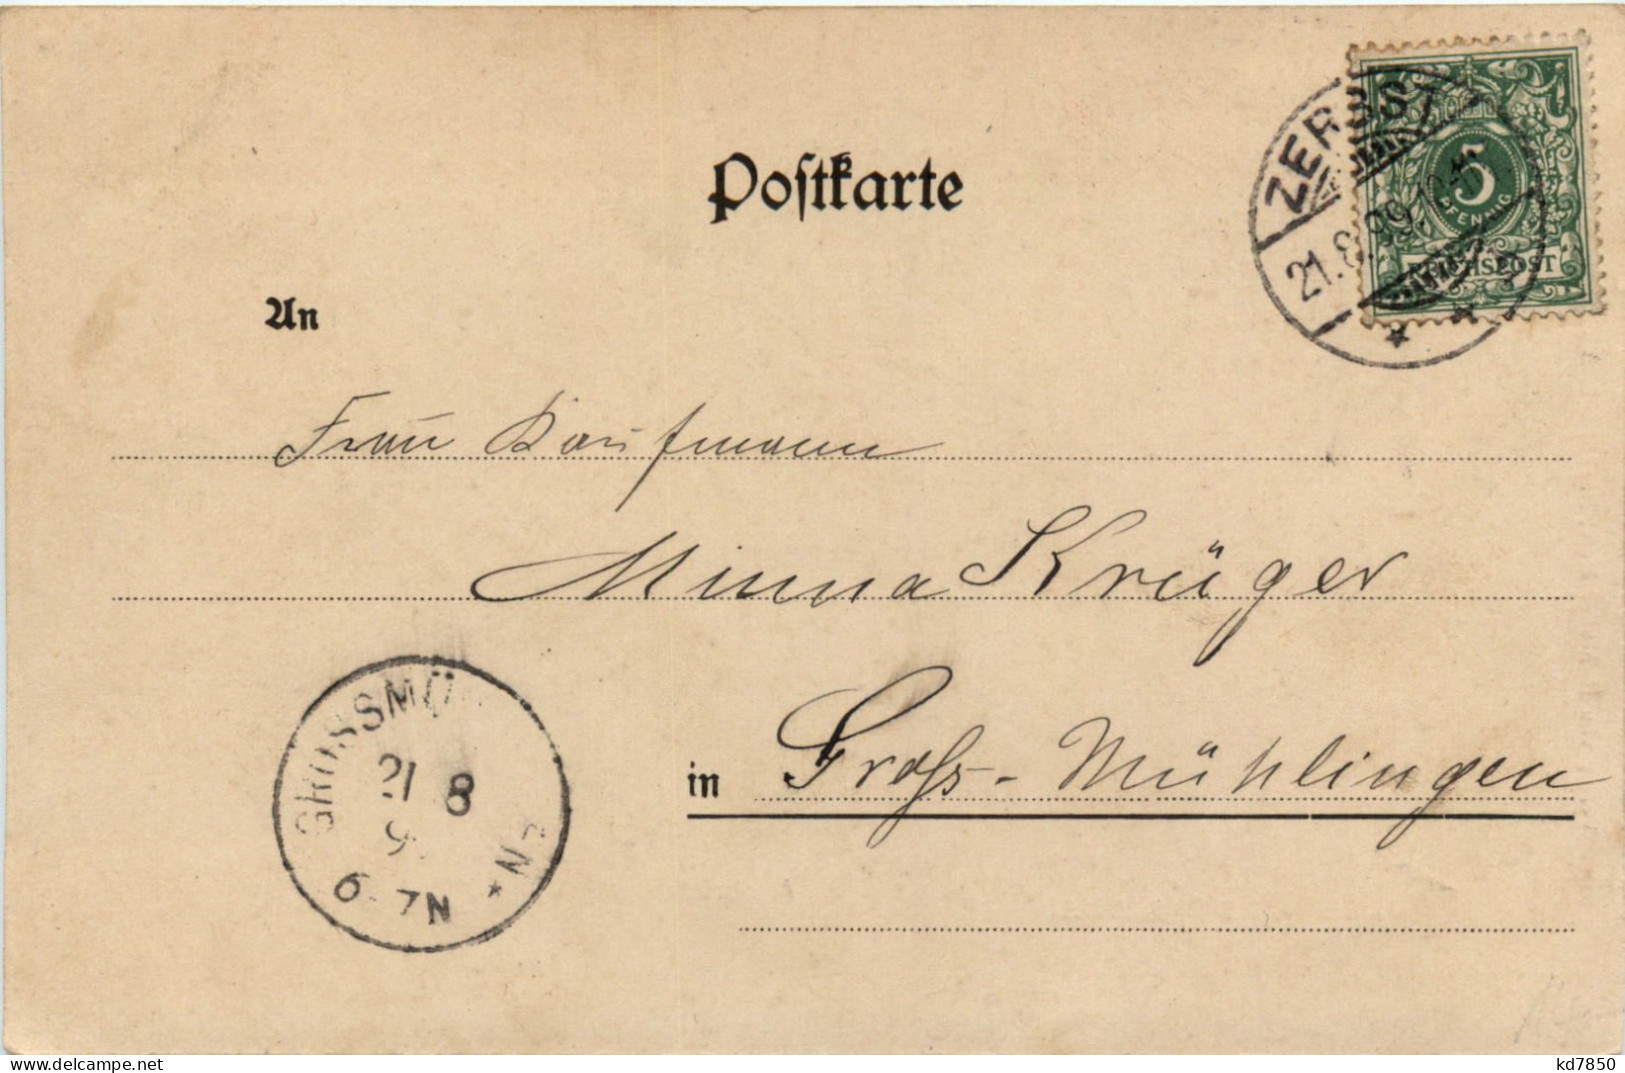 Postkarte
ZERBST
21.8.99.
5
PFENNIG
REICHSPOST
An
Frau Kaufmann
Minna Krüger
in Gross-Mühlingen
GROSSMÜ EN
21 8
9
6-7N
delcampe.net
kd7850